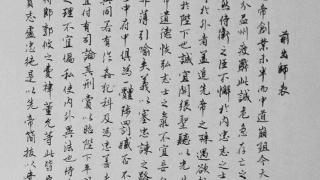 前出師表
帝創業未半而中道崩殂今天
分益州疲弊此誠危急存亡之
然侍衛之臣不懈於內忠志之士
於外者蓋追先帝之殊遇欲
於陛下也誠宜開張聖聽以光
帝遺德恢弘志士之氣不宜妄
菲薄引喻失義以塞忠諫之路
中府中俱為一體陟罰臧否不
異同若有作姦犯科及為忠善
宜付有司論其刑賞以昭陛下平
之理不宜偏私使內外異法也侍
侍郎郭攸之費禕董允等此皆
實志慮忠純是以先帝簡拔以